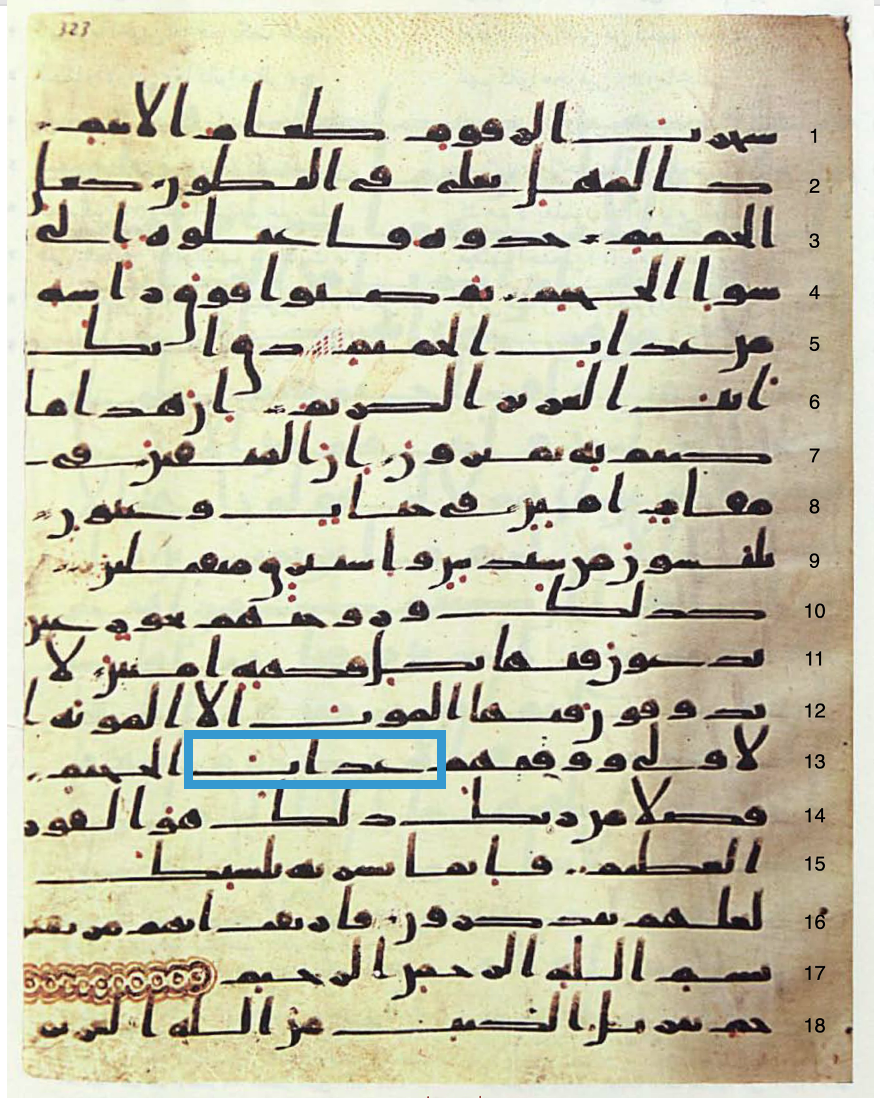 323
شجرت الزقوم طعام الاثيم 1
كالمهل يغلى فى البطون كغلى 2
الحميم خذوه فاعتلوه الى 3
سوا الجحيم ثم صبوا فوق راسه 4
من عذاب الحميم ذق انك 5
انت العزيز الكريم ان هذا ما 6
كنتم به تمترون ان المتقين فى 7
مقام امين فى جنات وعيون 8
يلبسون من سندس واستبرق متقبلين 9
كذلك وزوجنهم بحور عين 10
يدعون فيها بكل فكهه امنين لا 11
يذوقون فيها الموت الا الموته ا 12
لاولى ووقيهم عذاب الجحيم 13
فضلا من ربك ذلك هو الفوز 14
العظيم فانما يسرنه بلسنك 15
لعلهم يتذكرون فارتقب انهم مرتقبون 16
بسم الله الرحمن الرحيم 17
حم تنزيل الكتب من الله العزيز 18